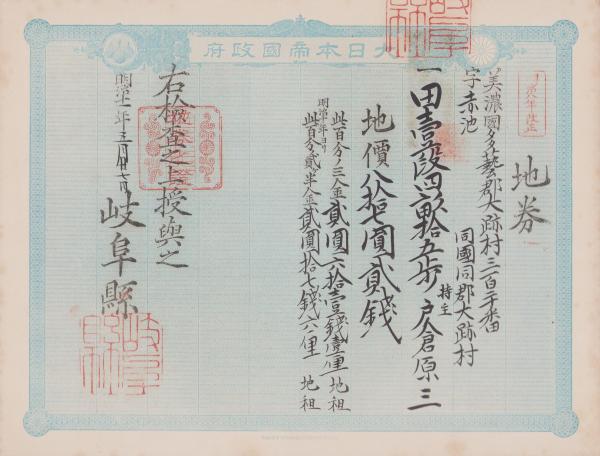 大日本帝國政府
地券
美濃國多藝郡大跡村三百二十番
字赤池
同國同郡大跡村
一田壹段四畝拾五歩 持主 戸倉原三
地價八拾七圓貳錢
此百分ノ三金貳圓六拾壹錢壹厘 地租
明治十年ヨリ
此百分ノ貳半金貳圓拾七錢六厘 地租
右檢査之上授與之
明治十一年三月廿七日
岐阜縣